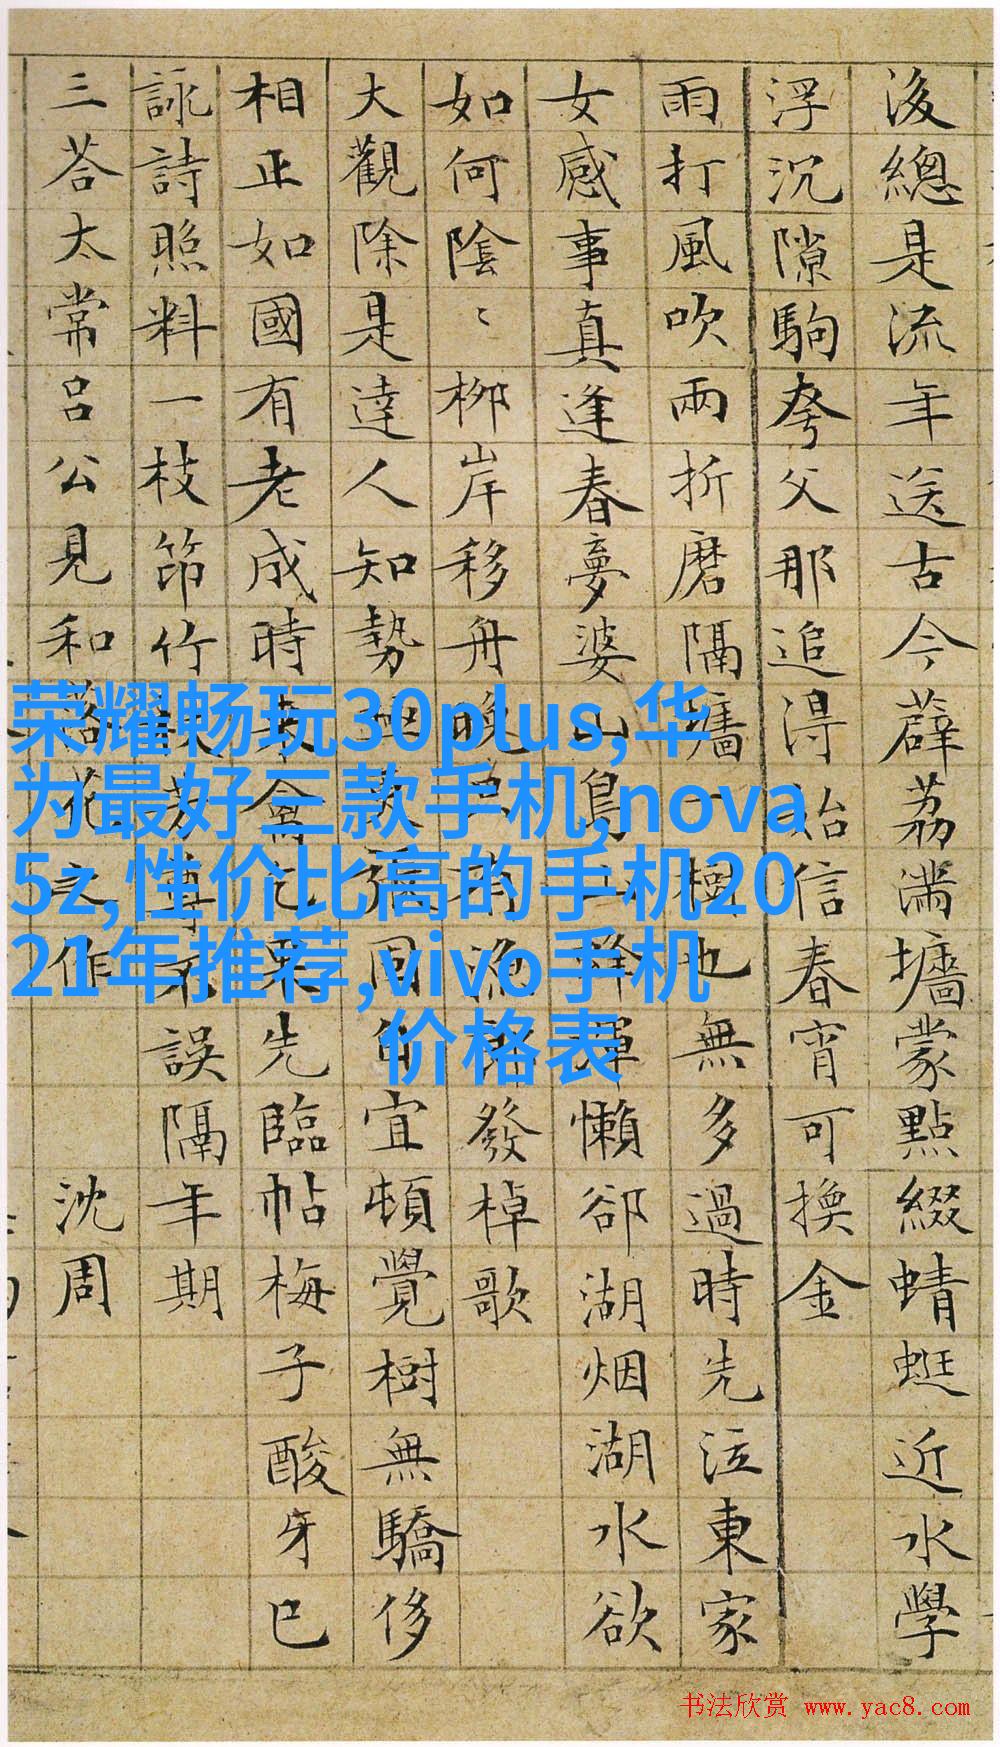 後總是流年送古今薜荔滿墻蒙點綴蜻蜓近水學
浮沉隙駒夸父那追得始信春宵可換金
雨打風吹兩折磨隔墻一樹也無多過時先泣東家
女感事真逢春夢婆山鳥群渾懶卻湖烟湖水欲
如何陰〻柳岸移舟晚有漁郎發棹歌
大觀除是達人知勢張宜頓覺樹無驕侈
相正如國有老成時來禽果先臨帖梅子酸牙已
詠詩照料一枝笻竹芳尊不誤隔年期
三荅太常吕公見和落花之作 沈周
荣耀畅玩30plus,华
为最好三款手机,nova
5z,性价比高的手机20
21年推荐,vivo手机
价格表
书法欣赏 www.yac8.com